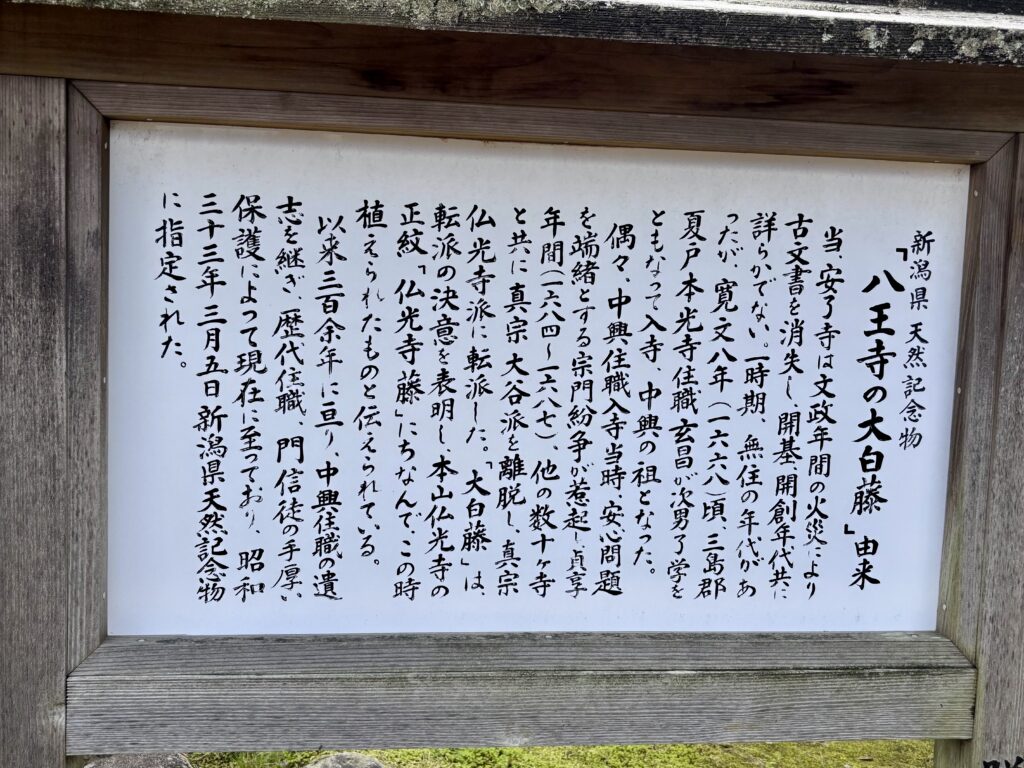 新潟県 天然記念物
「八王寺の大白藤」由来
当、安了寺は文政年間の火災により
古文書を消失し、開基、開創年代共に
詳らかでない。一時期、無住の年代があ
ったが、寛文八年(一六六八)頃、三島郡
夏戸本光寺住職、玄昌が次男了学を
ともなって入寺、中興の祖となった。
偶々、中興住職入寺当時、安心問題
を端緒とする宗門紛争が惹起し貞享
年間(一六八四～一六八七)、他の数十ヶ寺
と共に真宗大谷派を離脱し、真宗
仏光寺派に転派した。「大白藤」は、
転派の決意を表明し、本山仏光寺の
正紋「仏光寺藤」にちなんで、この時
植えられたものと伝えられている。
以来三百余年に亘り、中興住職の遺
志を継ぎ、歴代住職、門信徒の手厚い
保護によって現在に至っており、昭和
三十三年三月五日新潟県天然記念物
に指定された。